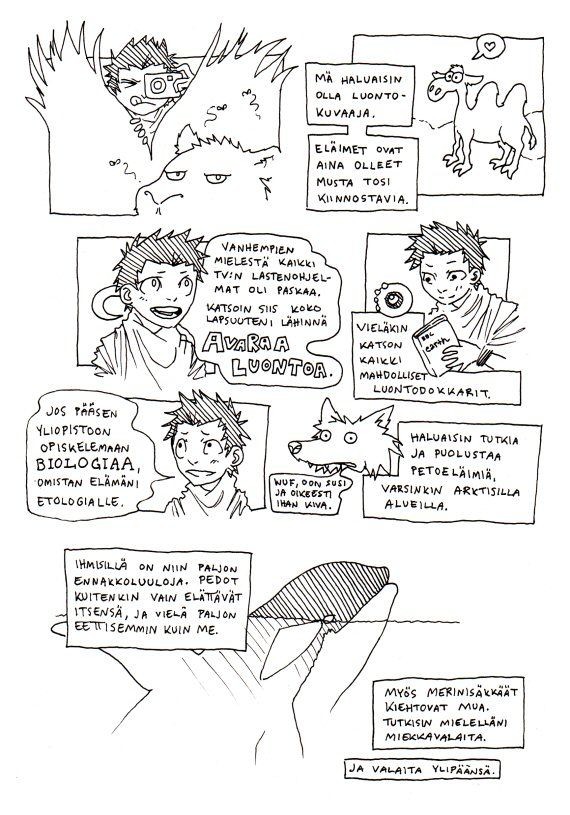 MÄ HALUAISIN
OLLA LUONTO-
KUVAAJA.
ELÄIMET OVAT
AINA OLLEET
MUSTA TOSI
KIINNOSTAVIA.
VANHEMPIEN
MIELESTÄ KAIKKI
TV:N LASTENOHJEL-
MAT OLI PASKAA.
KATSOIN SIIS KOKO
LAPSUUTENI LÄHINNÄ
AVARAA
LUONTOA.
BBC
earth
VIELÄKIN
KATSON
KAIKKI
MAHDOLLISET
LUONTODOKKARIT.
JOS PÄÄSEN
YLIOPISTOON
OPISKELEMAAN
BIOLOGIAA,
OMISTAN ELÄMÄNI
ETOLOGIALLE.
WUF, OON SUSI
JA OIKEESTI
IHAN KIVA.
HALUAISIN TUTKIA
JA PUOLUSTAA
PETOELÄIMIÄ,
VARSINKIN ARKTISILLA
ALUEILLA.
IHMISILLÄ ON NIIN PALJON
ENNAKKOLUULOJA. PEDOT
KUITENKIN VAIN ELÄTTÄVÄT
ITSENSÄ, JA VIELÄ PALJON
EETTISEMMIN KUIN ME.
MYÖS MERINISÄKKÄÄT
KIEHTOVAT MUA.
TUTKISIN MIELELLÄNI
MIEKKAVALAITA.
JA VALAITA YLIPÄÄNSÄ.